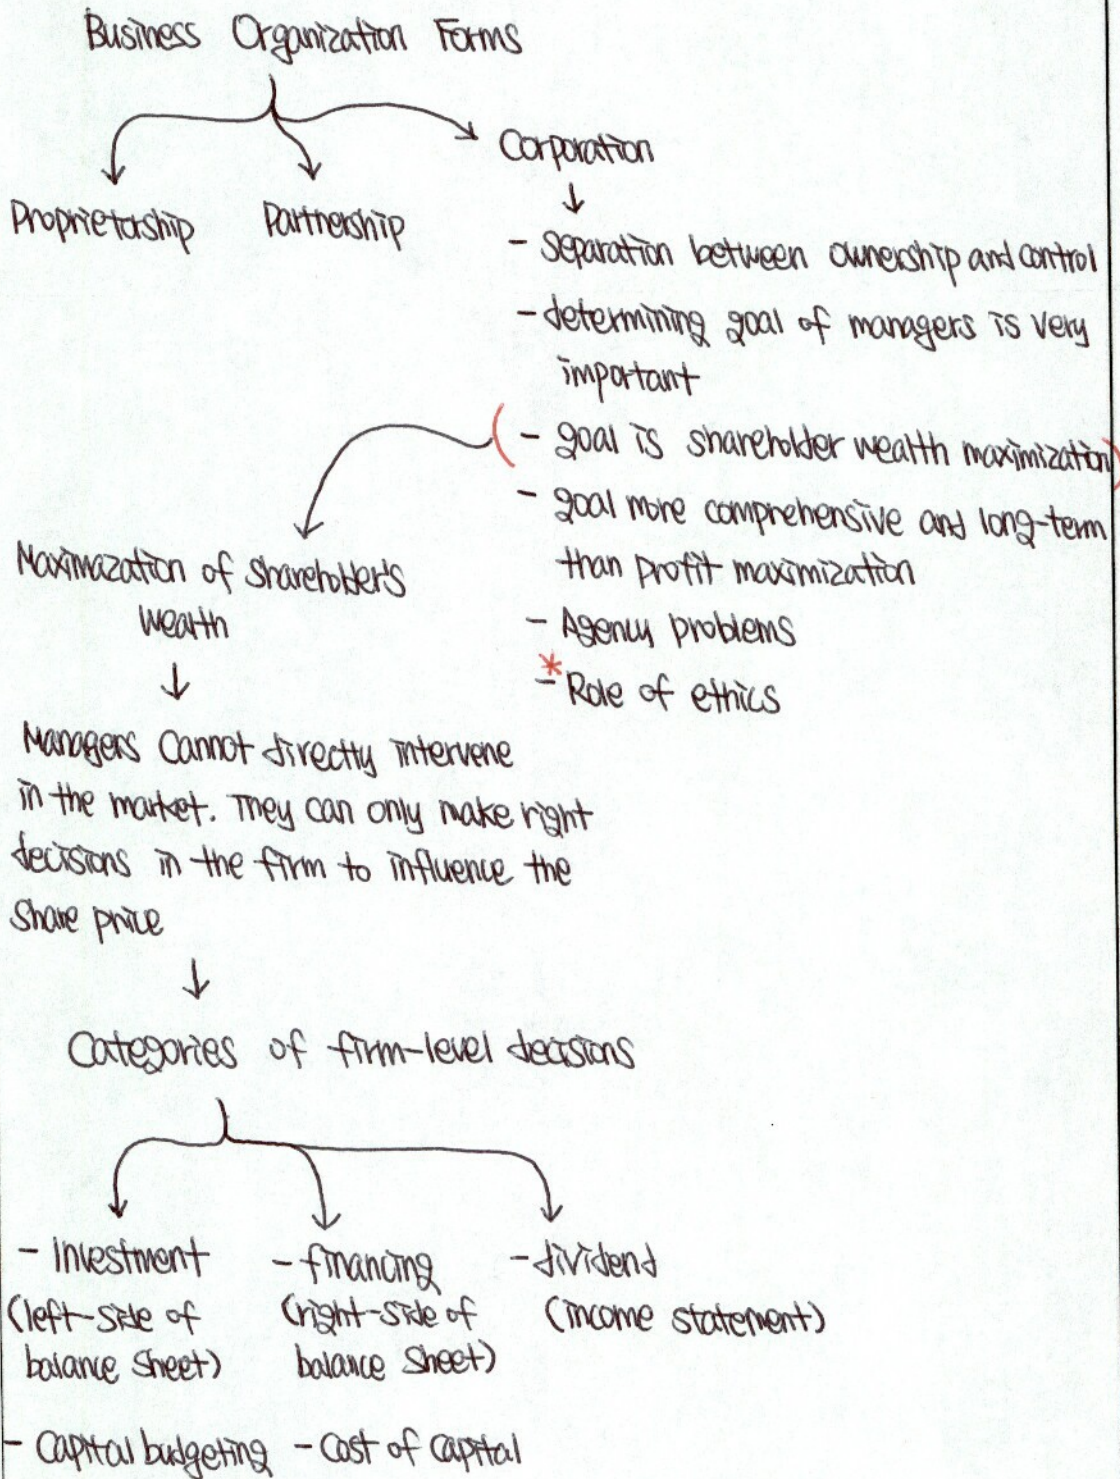 Business Organization Forms
Proprietorship
Partnership
Corporation
- separation between ownership and control
- determining goal of managers is very
important
(- goal is shareholder wealth maximization)
- goal more comprehensive and long-term
than profit maximization
- Agency problems
* - Role of ethics
Maximazation of shareholder's
wealth
Managers Cannot directly intervene
in the market. They can only make right
decisions in the firm to influence the
share price
Categories of firm-level decisions
- investment
(left-side of
balance sheet)
- financing
(right-side of
balance sheet)
- dividend
(income statement)
- Capital budgeting
- Cost of capital